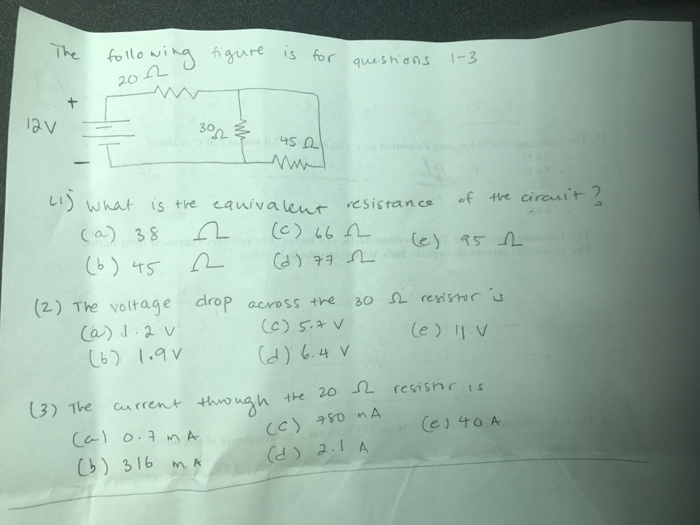 The following figure is for questions 1-3
20 Ω
+
12V
30Ω
45 Ω
-
(1) What is the equivalent resistance of the circuit?
(a) 38 Ω (c) 66 Ω (e) 95 Ω
(b) 45 Ω (d) 77 Ω
(2) The voltage drop across the 30 Ω resistor is
(a) 1.2 V (c) 5.7 V (e) 11 V
(b) 1.9 V (d) 6.4 V
(3) The current through the 20 Ω resistor is
(a) 0.7 mA (c) 780 mA (e) 40 A
(b) 316 mA (d) 2.1 A